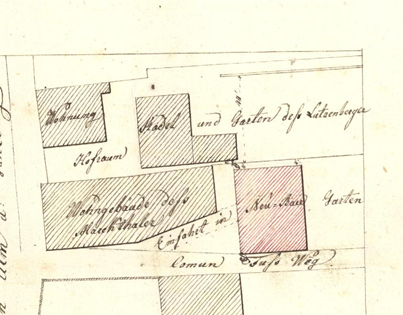 Wohnung
Stadel und Garten deß Lutzenberger
Hofraum
Wohngebäude deß
Maekthaler
Neu-Bau Garten
Einfahrt in
Comun Fuss Weg